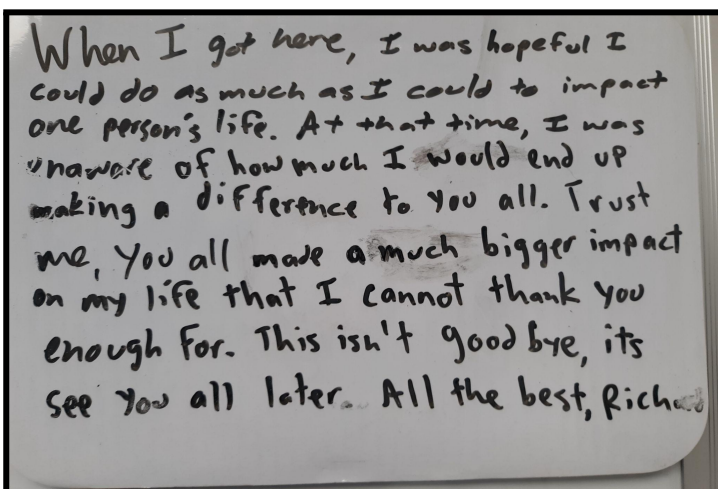 When I got here, I was hopeful I
could do as much as I could to impact
one person's life. At that time, I was
unaware of how much I would end up
making a difference to you all. Trust
me, you all made a much bigger impact
on my life that I cannot thank you
enough for. This isn't good bye, its
see you all later. All the best, Richard